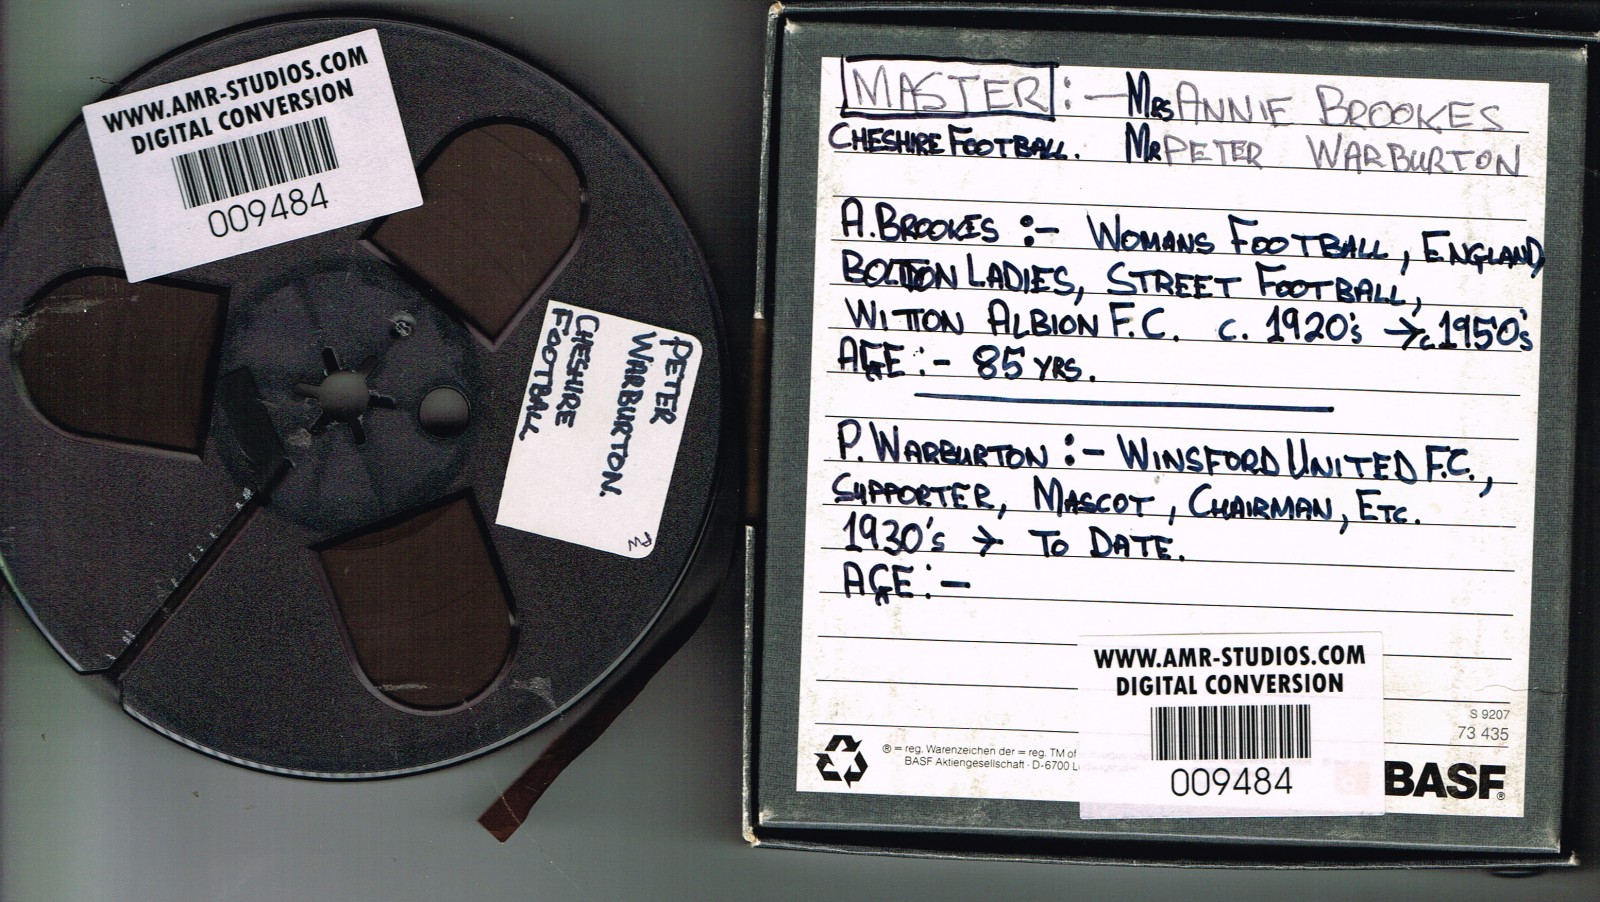 WWW.AMR-STUDIOS.COM
DIGITAL CONVERSION
009484
PETER
WARBURTON.
CHESHIRE
FOOTBALL
PW
MASTER :— MRS ANNIE BROOKES
CHESHIRE FOOTBALL. MR PETER WARBURTON
A. BROOKES :- WOMANS FOOTBALL, ENGLAND,
BOLTON LADIES, STREET FOOTBALL,
WITTON ALBION F.C. c. 1920's → c.1950's
AGE :- 85 YRS.
P. WARBURTON :- WINSFORD UNITED F.C.,
SUPPORTER, MASCOT, CHAIRMAN, ETC.
1930's → TO DATE.
AGE :-
WWW.AMR-STUDIOS.COM
DIGITAL CONVERSION
009484
S 9207
73 435
® = reg. Warenzeichen der = reg. TM of
BASF Aktiengesellschaft · D-6700 L
BASF®